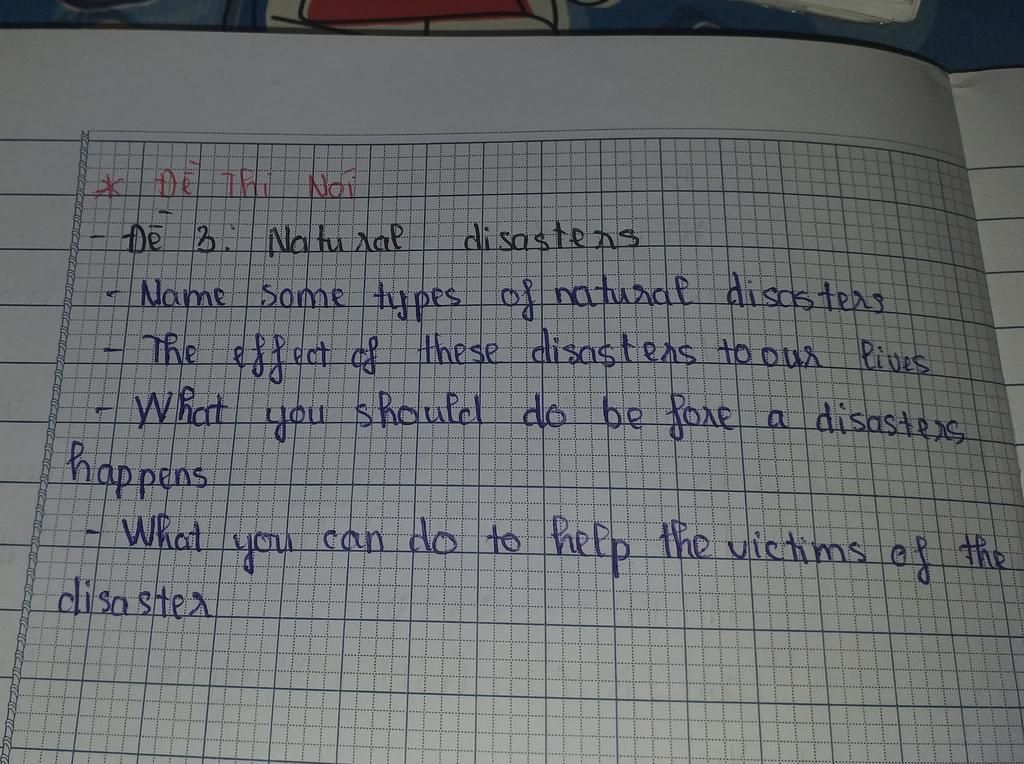 * Đề Thi Nói
- Đề 3: Natural disasters
- Name some types of natural disasters
- The effect of these disasters to our lives
- What you should do before a disasters
happens
- What you can do to help the victims of the
disaster